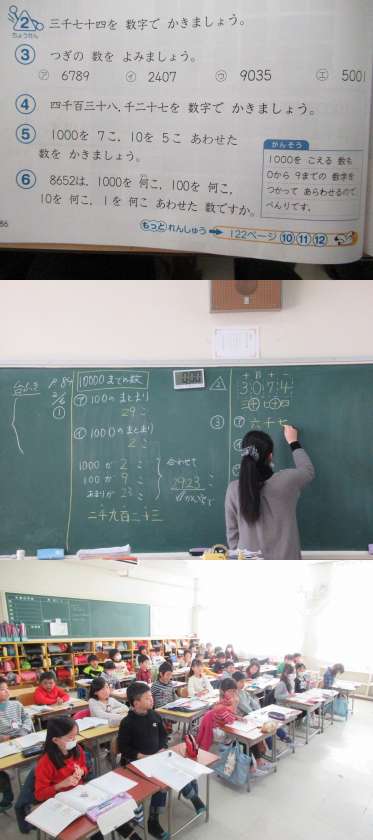 2 三千七十四を 数字で かきましょう。
ちょうせん
3 つぎの 数を よみましょう。
ア 6789 イ 2407 ウ 9035 エ 5001
4 四千百三十八、千二十七を 数字で かきましょう。
5 1000を 7こ、10を 5こ あわせた
数を かきましょう。
6 8652は、1000を 何こ、100を 何こ、
10を 何こ、1を 何こ あわせた 数ですか。
がんそう
1000を こえる 数も
0から 9までの 数字を
つかって あらわせるので
べんりです。
86
もっとれんしゅう ➡ 122ページ 10 11 12
P.84
2/6
①
10000までの数
ア 100のまとまり
29こ
イ 1000のまとまり
2こ
1000が 2こ
100が 9こ
あまりが 23こ
合わせて
2923こ
二千九百二十三
2
千 百 十 一
3 0 7 4
三千七十四
③ ア 六千七